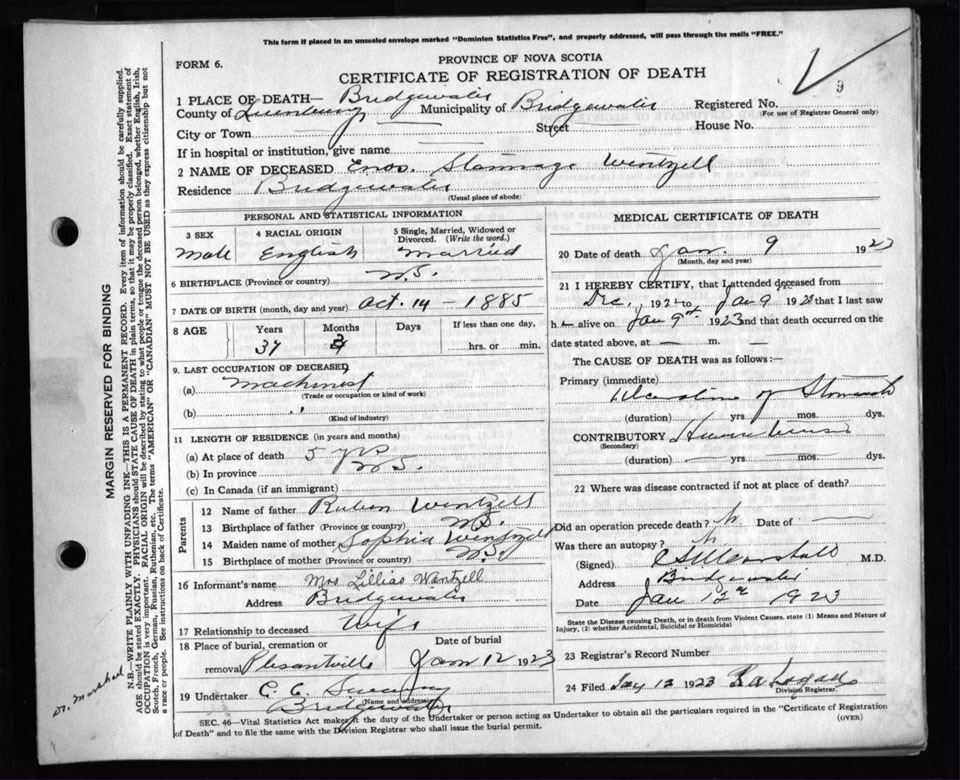 This form if placed in an unsealed envelope marked "Dominion Statistics Free", and properly addressed, will pass through the mails "FREE."
FORM 6.
PROVINCE OF NOVA SCOTIA
CERTIFICATE OF REGISTRATION OF DEATH
9
1 PLACE OF DEATH— Bridgewater
County of Lunenburg Municipality of Bridgewater Registered No.
(For use of Registrar General only)
City or Town Street House No.
If in hospital or institution, give name
2 NAME OF DECEASED Enos. Wentzell
Residence Bridgewater
(Usual place of abode)
PERSONAL AND STATISTICAL INFORMATION
3 SEX 4 RACIAL ORIGIN 5 Single, Married, Widowed or Divorced. (Write the word.)
Male English Married
6 BIRTHPLACE (Province or country) N.S.
7 DATE OF BIRTH (month, day and year) Oct. 14 - 1885
8 AGE Years Months Days If less than one day,
37 hrs. or min.
9. LAST OCCUPATION OF DECEASED
(a) Machinist
(Trade or occupation or kind of work)
(b) "
(Kind of industry)
11 LENGTH OF RESIDENCE (in years and months)
(a) At place of death 5 yrs
(b) In province N S.
(c) In Canada (if an immigrant)
Parents
12 Name of father Ruben Wentzell
13 Birthplace of father (Province or country) N.S.
14 Maiden name of mother Sophia Wentzell
15 Birthplace of mother (Province or country) N.S.
16 Informant's name Mrs Lillias Wentzell
Address Bridgewater
17 Relationship to deceased Wife
18 Place of burial, cremation or removal Date of burial
Plesantville Jan 12 1923
19 Undertaker C. C.
Bridgewater
MEDICAL CERTIFICATE OF DEATH
20 Date of death Jan. 9 1923
(Month, day and year)
21 I HEREBY CERTIFY, that I attended deceased from
Dec, 1922 to Jan 9 1923 that I last saw
h— alive on Jan 9th 1923 and that death occurred on the
date stated above, at — m. —
The CAUSE OF DEATH was as follows:—
Primary (immediate)
Ulceration of Stomach
(duration) yrs. mos. dys.
CONTRIBUTORY
(Secondary)
(duration) yrs. mos. dys.
22 Where was disease contracted if not at place of death?
Did an operation precede death? N Date of
Was there an autopsy? N
(Signed). Marshall M.D.
Address Bridgewater
Date Jan 12th 1923
State the Disease causing Death, or in death from Violent Causes, state (1) Means and Nature of
Injury, (2) whether Accidental, Suicidal or Homicidal)
23 Registrar's Record Number
24 Filed Jany 12 1923
Division Registrar
SEC. 46—Vital Statistics Act makes it the duty of the Undertaker or person acting as Undertaker to obtain all the particulars required in the "Certificate of Registration
of Death" and to file the same with the Division Registrar who shall issue the burial permit.
(OVER)
MARGIN RESERVED FOR BINDING
N.B.—WRITE PLAINLY WITH UNFADING INK—THIS IS A PERMANENT RECORD. Every item of information should be carefully supplied.
AGE should be stated EXACTLY. PHYSICIANS should STATE CAUSE OF DEATH in plain terms, so that it may be properly classified. Exact statement of
OCCUPATION is very important. RACIAL ORIGIN will be described by stating to what people or tongue the deceased person belonged, whether English, Irish,
Scotch, French, German, Russian, Ruthenian, etc. The terms "AMERICAN" OR "CANADIAN" MUST NOT BE USED as they express citizenship but not
a race or people. See instructions on back of Certificate.
Dr. Marshall